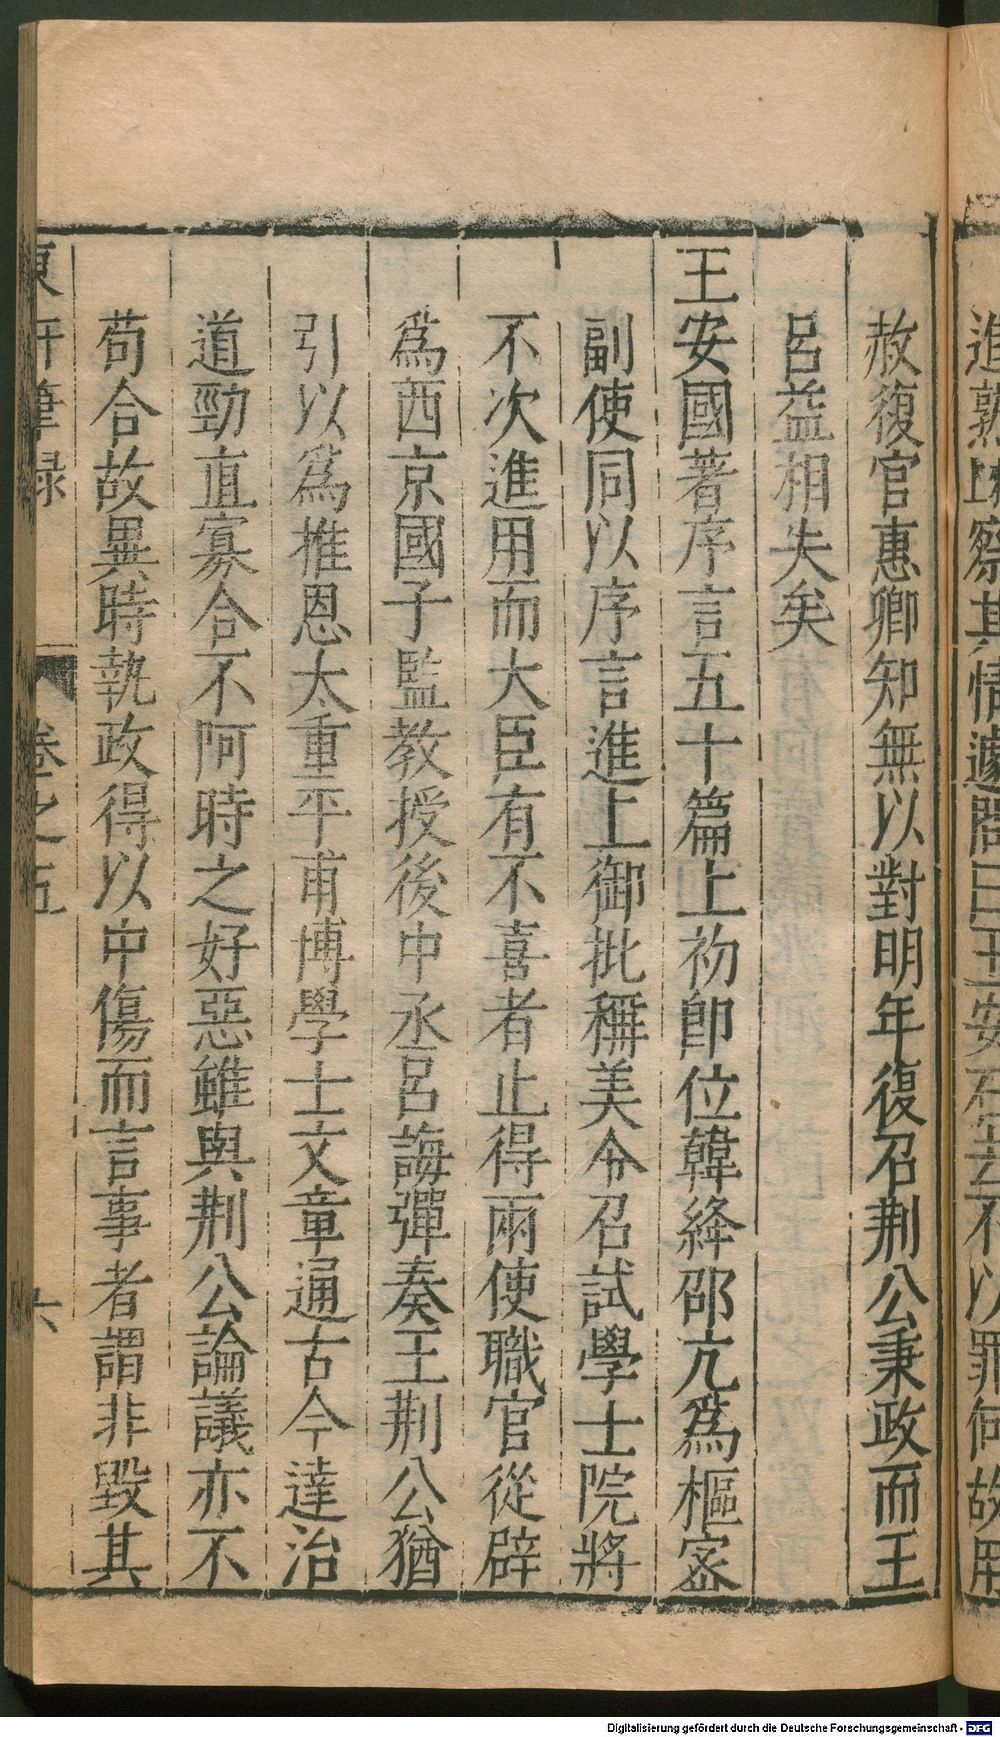 進熟上察其情遽問曰王安石去不以罪何故用
赦復官惠卿知無以對明年復召荆公秉政而王
呂益相失矣
王安國著序言五十篇上初卽位韓絳邵亢爲樞密
副使同以序言進上御批稱美令召試學士院將
不次進用而大臣有不喜者止得兩使職官從辟
爲西京國子監教授後中丞呂誨彈奏王荆公猶
引以爲推恩太重平甫博學士文章通古今達治
道勁直寡合不阿時之好惡雖與荆公論議亦不
苟合故異時執政得以中傷而言事者謂非毀其
東軒筆録 卷之五 六
Digitalisierung gefördert durch die Deutsche Forschungsgemeinschaft - DFG